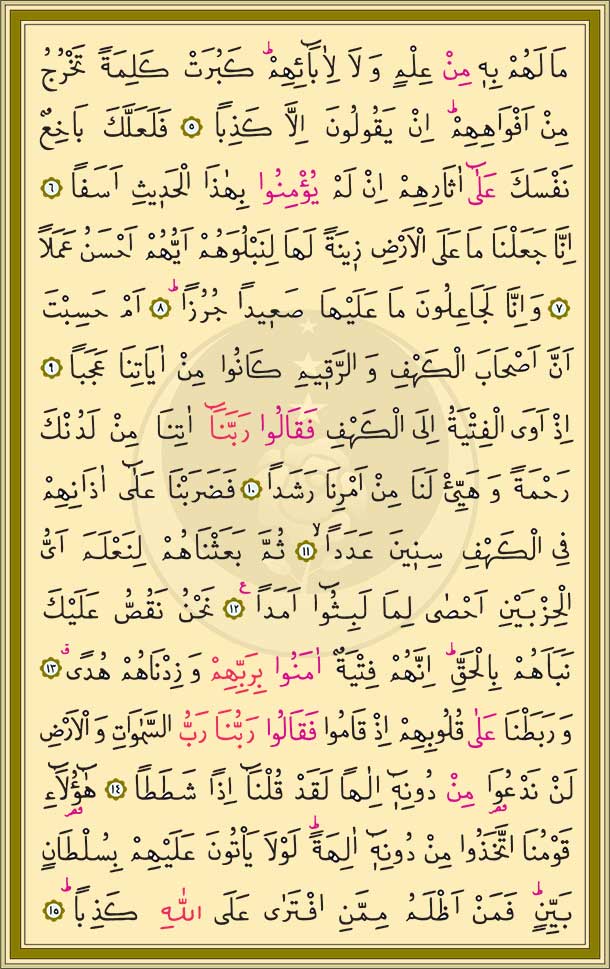 مَا لَهُمْ بِهٖ مِنْ عِلْمٍ وَلَا لِاٰبَٓائِهِمْۜ كَبُرَتْ كَلِمَةً تَخْرُجُ
مِنْ اَفْوَاهِهِمْۜ اِنْ يَقُولُونَ اِلَّا كَذِباً ﴿٥﴾ فَلَعَلَّكَ بَاخِعٌ
نَفْسَكَ عَلٰٓى اٰثَارِهِمْ اِنْ لَمْ يُؤْمِنُوا بِهٰذَا الْحَدٖيثِ اَسَفاً ﴿٦﴾
اِنَّا جَعَلْنَا مَا عَلَى الْاَرْضِ زٖينَةً لَهَا لِنَبْلُوَهُمْ اَيُّهُمْ اَحْسَنُ عَمَلاً
﴿٧﴾ وَاِنَّا لَجَاعِلُونَ مَا عَلَيْهَا صَعٖيداً جُرُزاًۜ ﴿٨﴾ اَمْ حَسِبْتَ
اَنَّ اَصْحَابَ الْكَهْفِ وَالرَّقٖيمِ كَانُوا مِنْ اٰيَاتِنَا عَجَباً ﴿٩﴾
اِذْ اَوَى الْفِتْيَةُ اِلَى الْكَهْفِ فَقَالُوا رَبَّنَٓا اٰتِنَا مِنْ لَدُنْكَ
رَحْمَةً وَهَيِّئْ لَنَا مِنْ اَمْرِنَا رَشَداً ﴿١٠﴾ فَضَرَبْنَا عَلٰٓى اٰذَانِهِمْ
فِي الْكَهْفِ سِنٖينَ عَدَداًۙ ﴿١١﴾ ثُمَّ بَعَثْنَاهُمْ لِنَعْلَمَ اَيُّ
الْحِزْبَيْنِ اَحْصٰى لِمَا لَبِثُٓوا اَمَداً ﴿١٢﴾ ع نَحْنُ نَقُصُّ عَلَيْكَ
نَبَاَهُمْ بِالْحَقِّۜ اِنَّهُمْ فِتْيَةٌ اٰمَنُوا بِرَبِّهِمْ وَزِدْنَاهُمْ هُدًىۗ ﴿١٣﴾
وَرَبَطْنَا عَلٰى قُلُوبِهِمْ اِذْ قَامُوا فَقَالُوا رَبُّنَا رَبُّ السَّمٰوَاتِ وَالْاَرْضِ
لَنْ نَدْعُوَ۬ا مِنْ دُونِهٖٓ اِلٰهاً لَقَدْ قُلْنَٓا اِذاً شَطَطاً ﴿١٤﴾ هٰٓؤُ۬لَٓاءِ
قَوْمُنَا اتَّخَذُوا مِنْ دُونِهٖٓ اٰلِهَةًۜ لَوْلَا يَأْتُونَ عَلَيْهِمْ بِسُلْطَانٍ
بَيِّنٍۜ فَمَنْ اَظْلَمُ مِمَّنِ افْتَرٰى عَلَى اللّٰهِ كَذِباًۜ ﴿١٥﴾